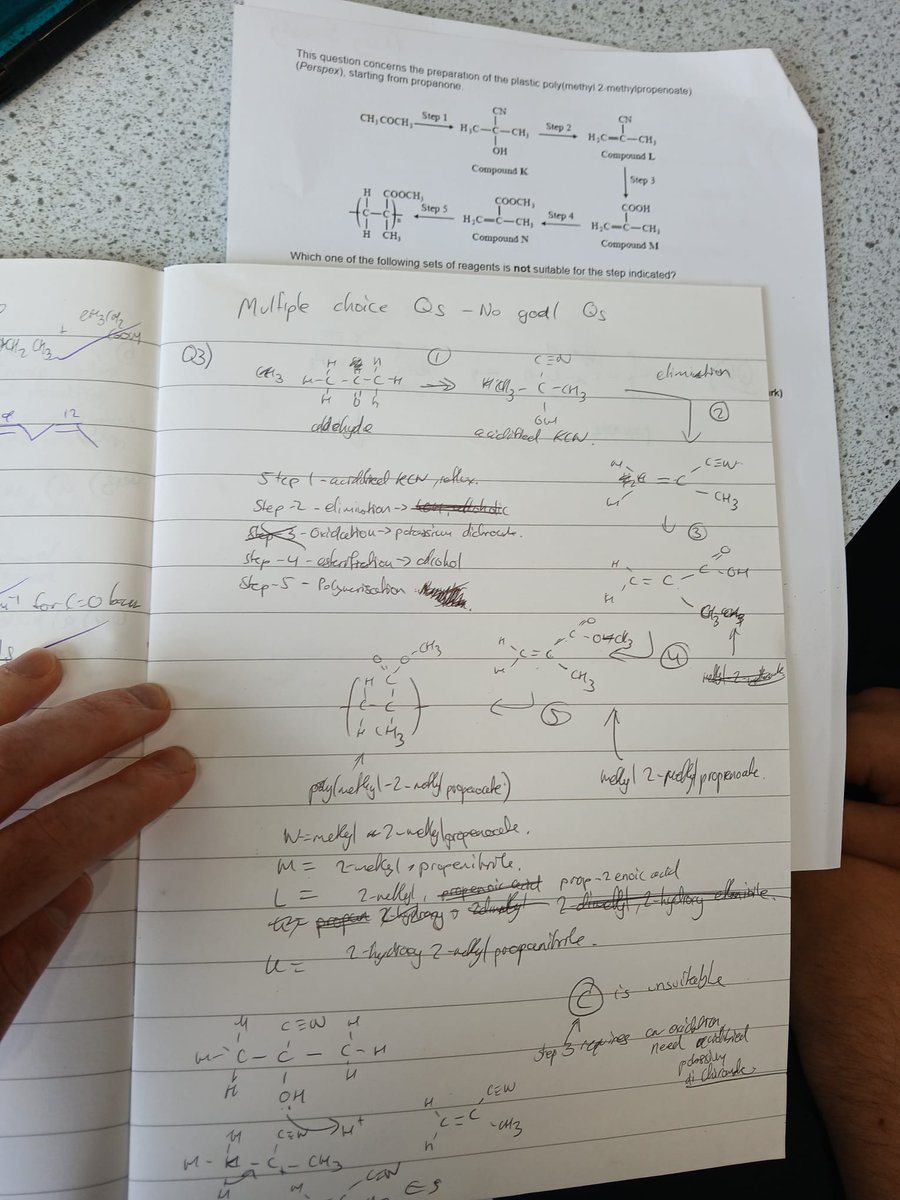 This question concerns the preparation of the plastic poly(methyl 2-methylpropenoate)
(Perspex), starting from propanone.
CH₃COCH₃ Step 1 H₃C—C—CH₃ Step 2 H₂C=C—CH₃
CN
OH
CN
Compound K
Compound L
Step 3
H COOCH₃
C—C
H CH₃
n
Step 5
COOCH₃
H₂C=C—CH₃
Step 4
COOH
H₂C=C—CH₃
Compound N
Compound M
Which one of the following sets of reagents is not suitable for the step indicated?
rk)
Multiple choice Qs - No goal Qs
Q3)
①
C≡N
elimination
②
aldehyde
OH
acidified KCN.
Step 1 - acidified KCN, reflux.
Step -2 - elimination →
Step -3 - Oxidation → potassium dichromate.
Step -4 - esterification → alcohol
Step -5 - Polymerisation
C≡N
CH3
③
C-OH
④
⑤
O-CH3
CH3
for C=O
12
poly(methyl-2-methyl propenoate)
methyl 2-methyl propenoate.
N = methyl 2-methylpropenoate.
M = 2-methyl, propenitrile.
L = 2-methyl, propenoic acid prop-2 enoic acid
2-hydroxy 2-methyl propanitrile.
C is unsuitable
Step 3 requires an oxidation
need acidified
potassium
di chromate.
H C≡N H
H - C - C - C - H
H OH H
H+
C≡N
CH3
H C≡N
C - CH3